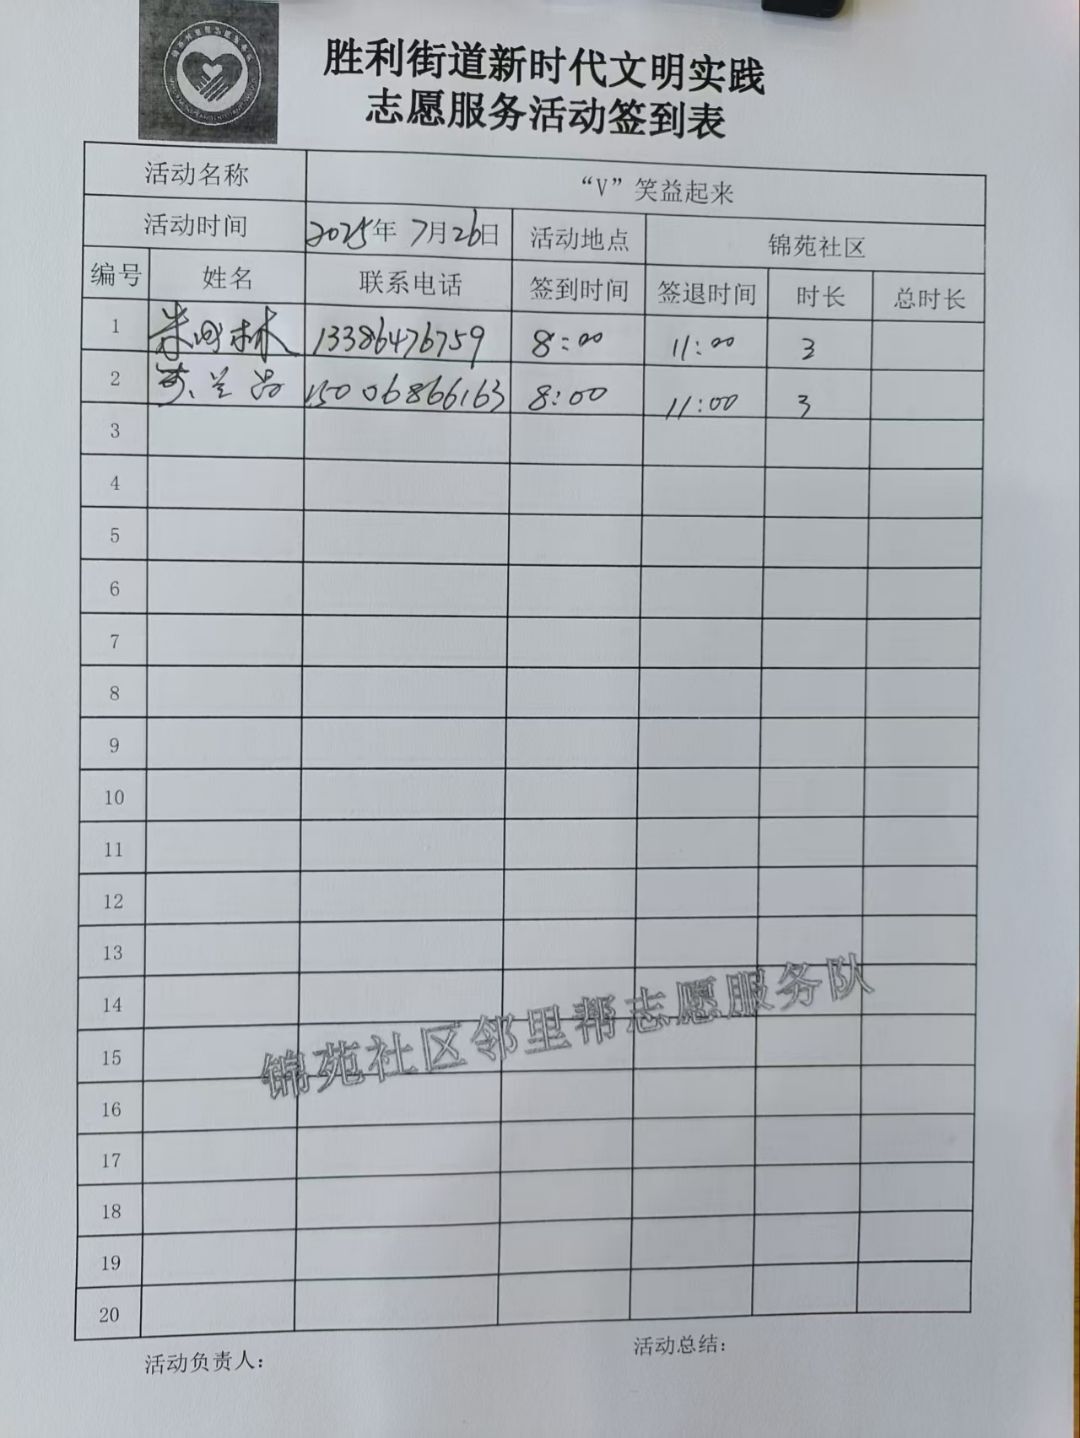 胜利街道新时代文明实践
志愿服务活动签到表
活动名称 “V”笑益起来
活动时间 2025年 7月26日 活动地点 锦苑社区
编号 姓名 联系电话 签到时间 签退时间 时长 总时长
1 13386476759 8:00 11:00 3
2 15006866163 8:00 11:00 3
3
4
5
6
7
8
9
10
11
12
13
14
15
16
17
18
19
20
锦苑社区邻里帮志愿服务队
活动负责人: 活动总结: